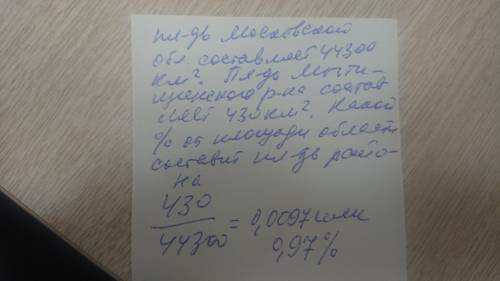 пл-дь Московской
обл. составляет 44300
км². Пл-дь Мыти-
щинского р-на состав
ляет 430 км². Какой
% от площади области
составит пл-дь райо-
на
430
44300 = 0,0097 или
0,97%